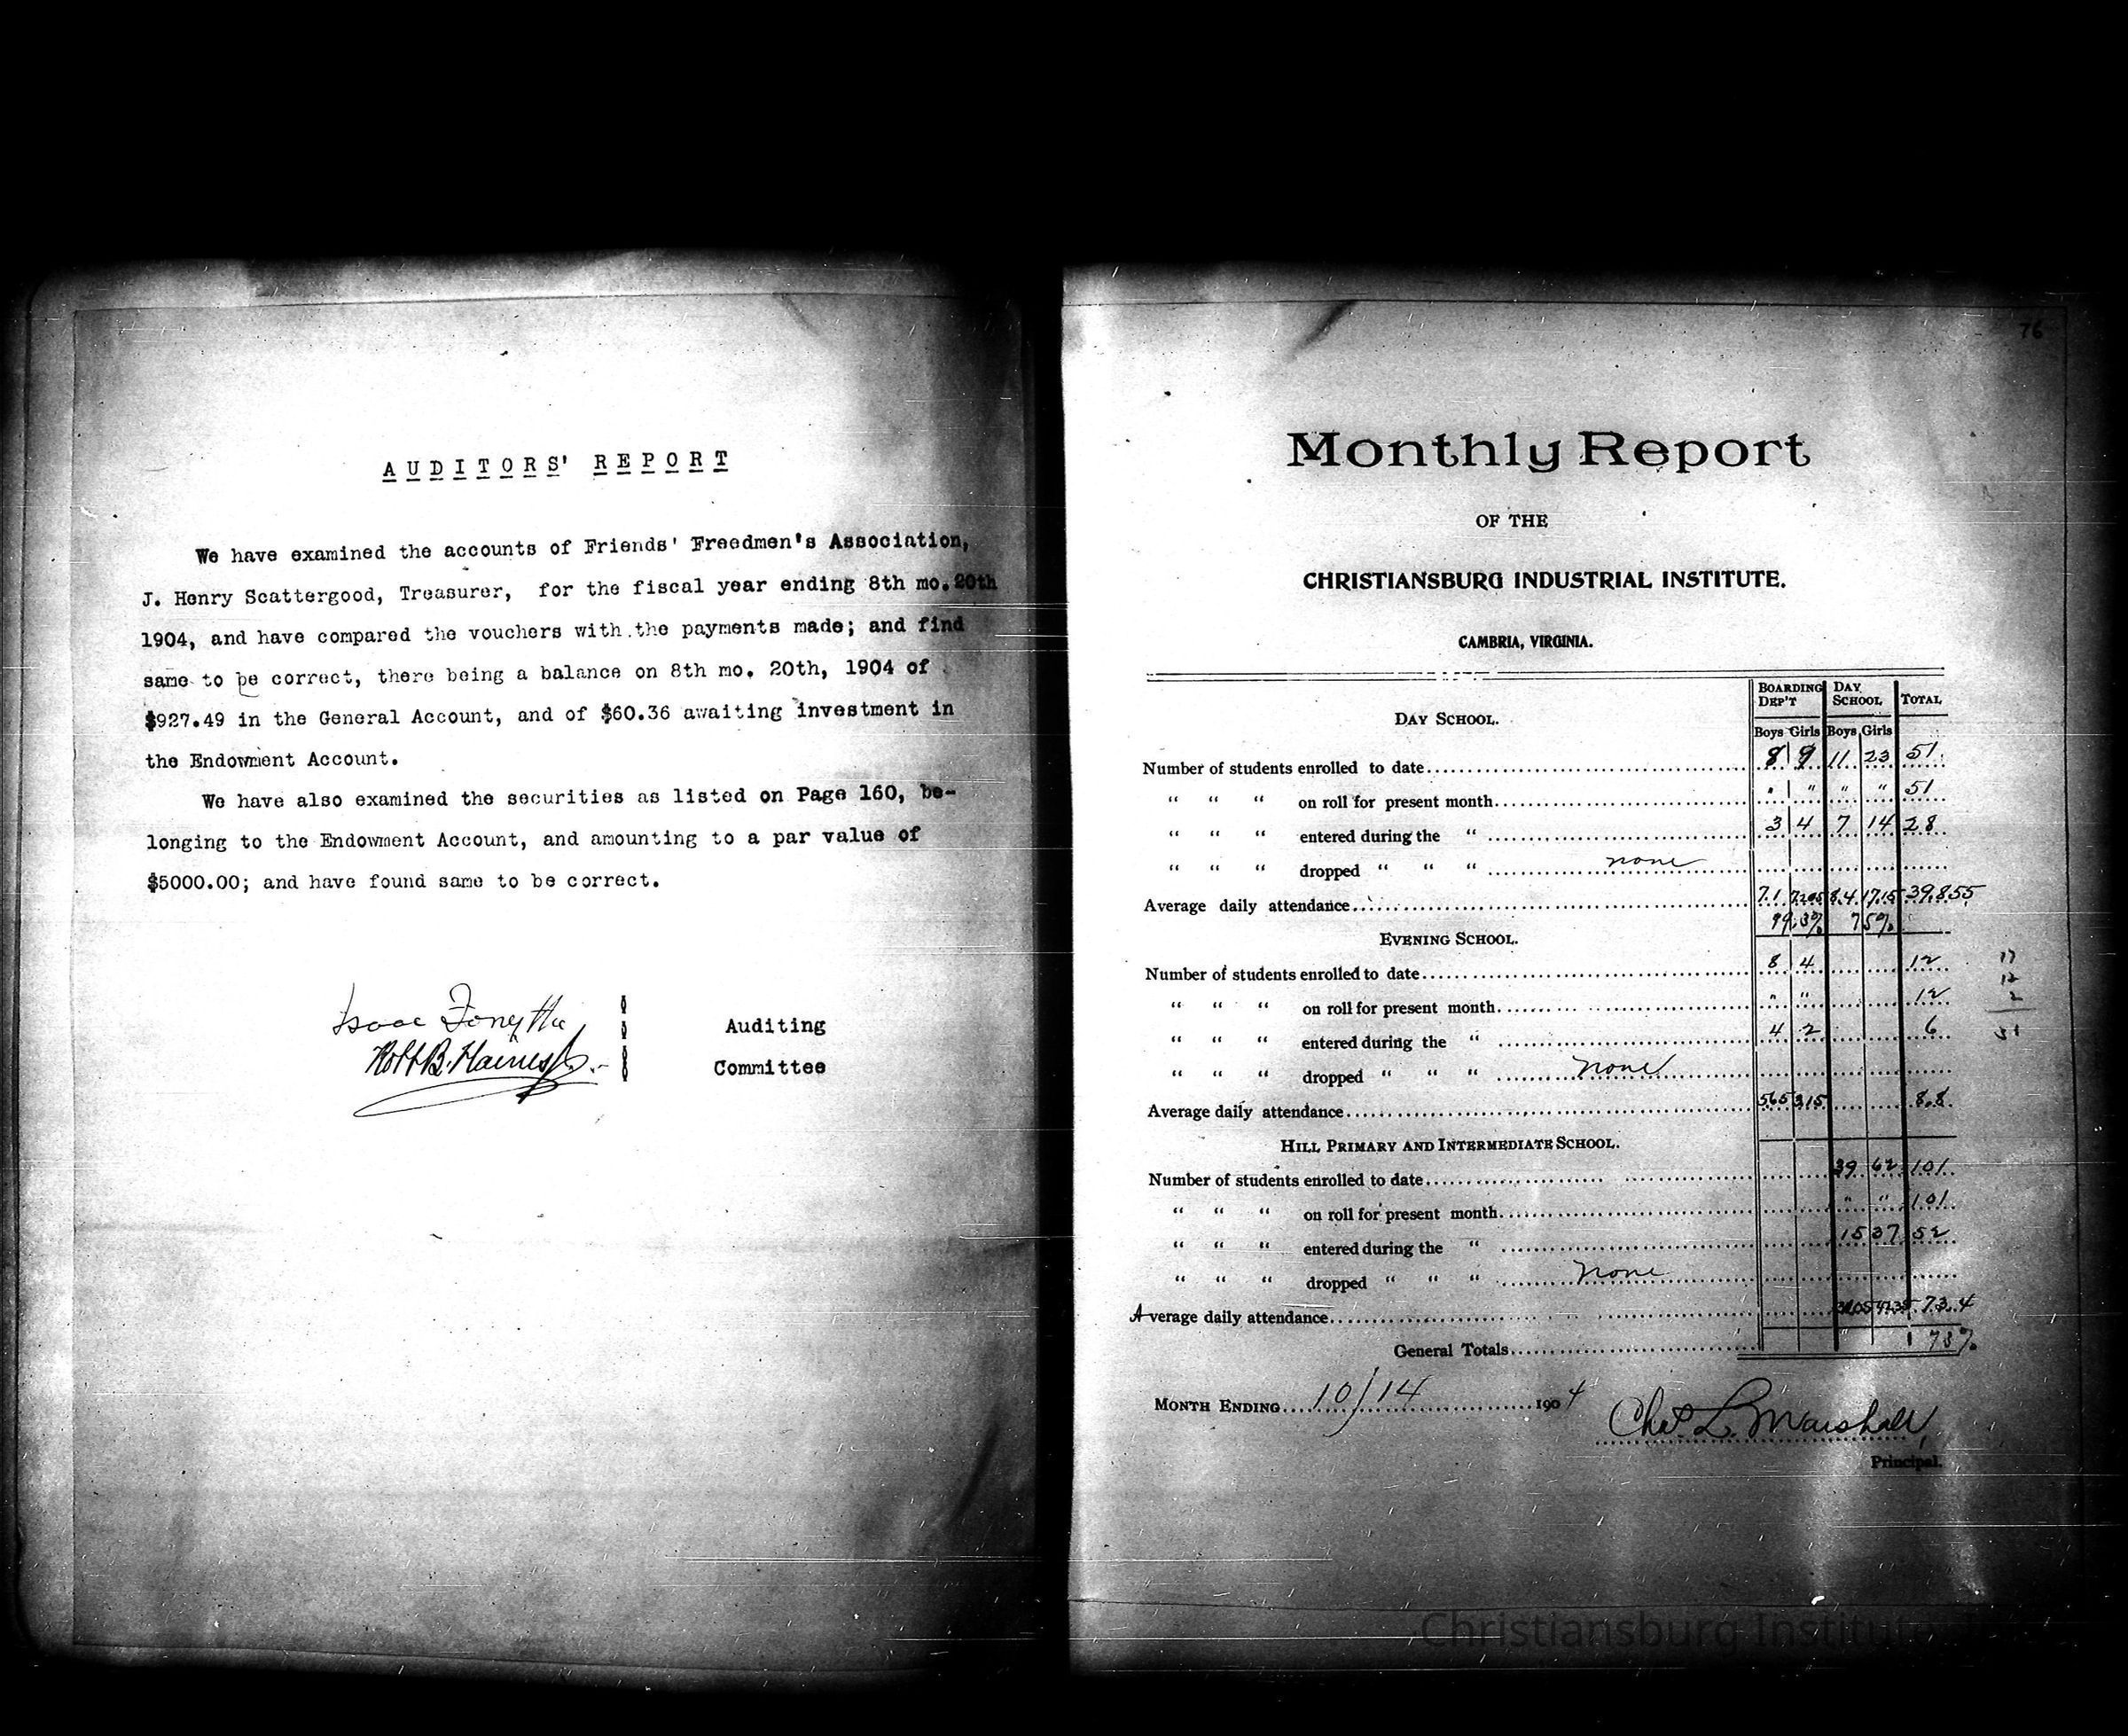 AUDITORS' REPORT
We have examined the accounts of Friends' Freedmen's Association,
J. Henry Scattergood, Treasurer, for the fiscal year ending 8th mo. 20th
1904, and have compared the vouchers with the payments made; and find
same to be correct, there being a balance on 8th mo. 20th, 1904 of
$927.49 in the General Account, and of $60.36 awaiting investment in
the Endowment Account.
We have also examined the securities as listed on Page 160, be-
longing to the Endowment Account, and amounting to a par value of
$5000.00; and have found same to be correct.
Isaac Forsythe
Robt B. Haines Jr.
Auditing
Committee
76
Monthly Report
OF THE
CHRISTIANSBURG INDUSTRIAL INSTITUTE.
CAMBRIA, VIRGINIA.
DAY SCHOOL. BOARDING DEP'T DAY SCHOOL TOTAL
Boys Girls Boys Girls
Number of students enrolled to date 8 9 11 23 51
" " " on roll for present month " " " " 51
" " " entered during the " 3 4 7 14 28
" " " dropped " " " none
Average daily attendance 7.1 8.4 17.15 39.855
99.3% 75%
EVENING SCHOOL.
Number of students enrolled to date 8 4 12
" " " on roll for present month " " 12
" " " entered during the " 4 2 6
" " " dropped " " " none
Average daily attendance 565 315 8.8
HILL PRIMARY AND INTERMEDIATE SCHOOL.
Number of students enrolled to date 39 62 101
" " " on roll for present month " " 101
" " " entered during the " 15 37 52
" " " dropped " " " none
Average daily attendance 73.4
General Totals 73%
17
12
2
31
MONTH ENDING 10/14 1904
Chas. L. Marshall,
Principal.
Christiansburg Institute